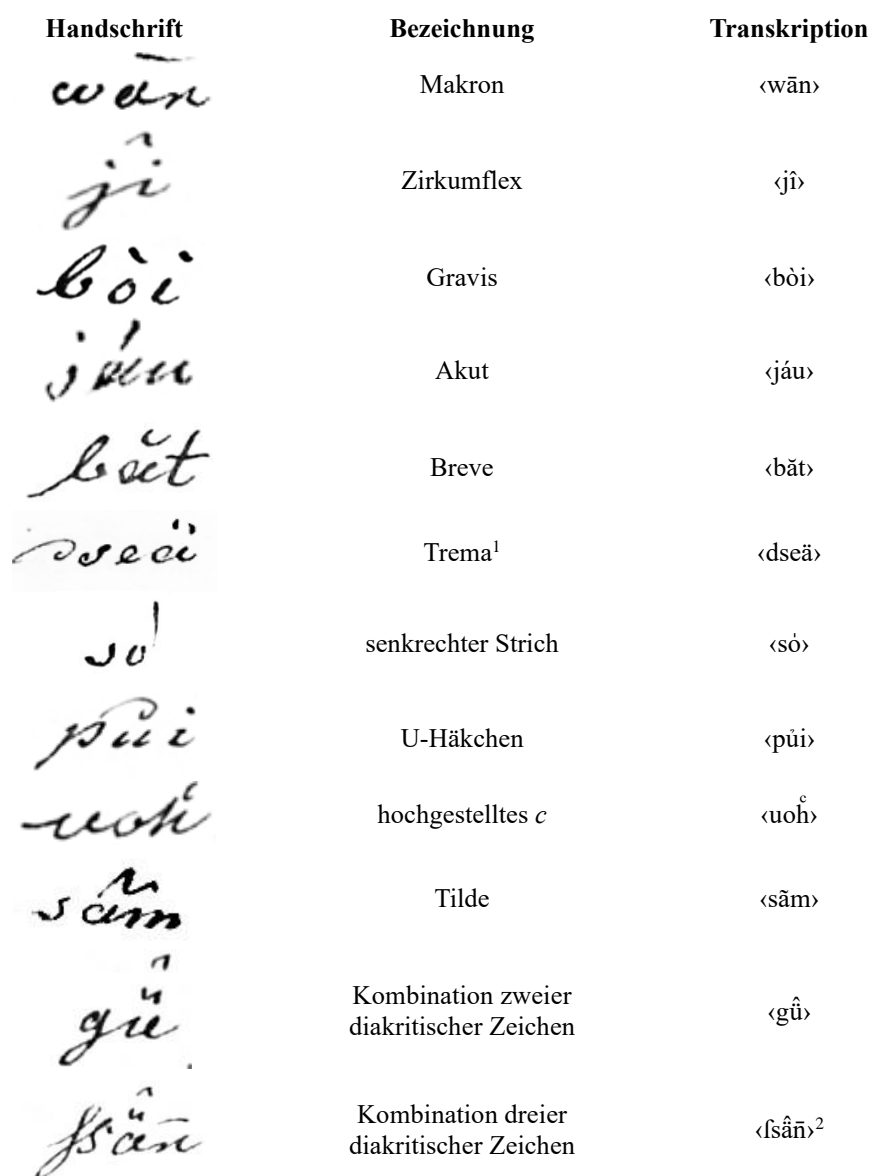 Handschrift Bezeichnung Transkription
wān Makron ‹wān›
jî Zirkumflex ‹jî›
bòi Gravis ‹bòi›
jáu Akut ‹jáu›
băt Breve ‹băt›
dseä Trema¹ ‹dseä›
so̍ senkrechter Strich ‹so̍›
pủi U-Häkchen ‹pủi›
uohͨ hochgestelltes c ‹uohͨ›
sãm Tilde ‹sãm›
gü̂ Kombination zweier diakritischer Zeichen ‹gü̂›
ſsä̂n̄ Kombination dreier diakritischer Zeichen ‹ſsä̂n̄›²